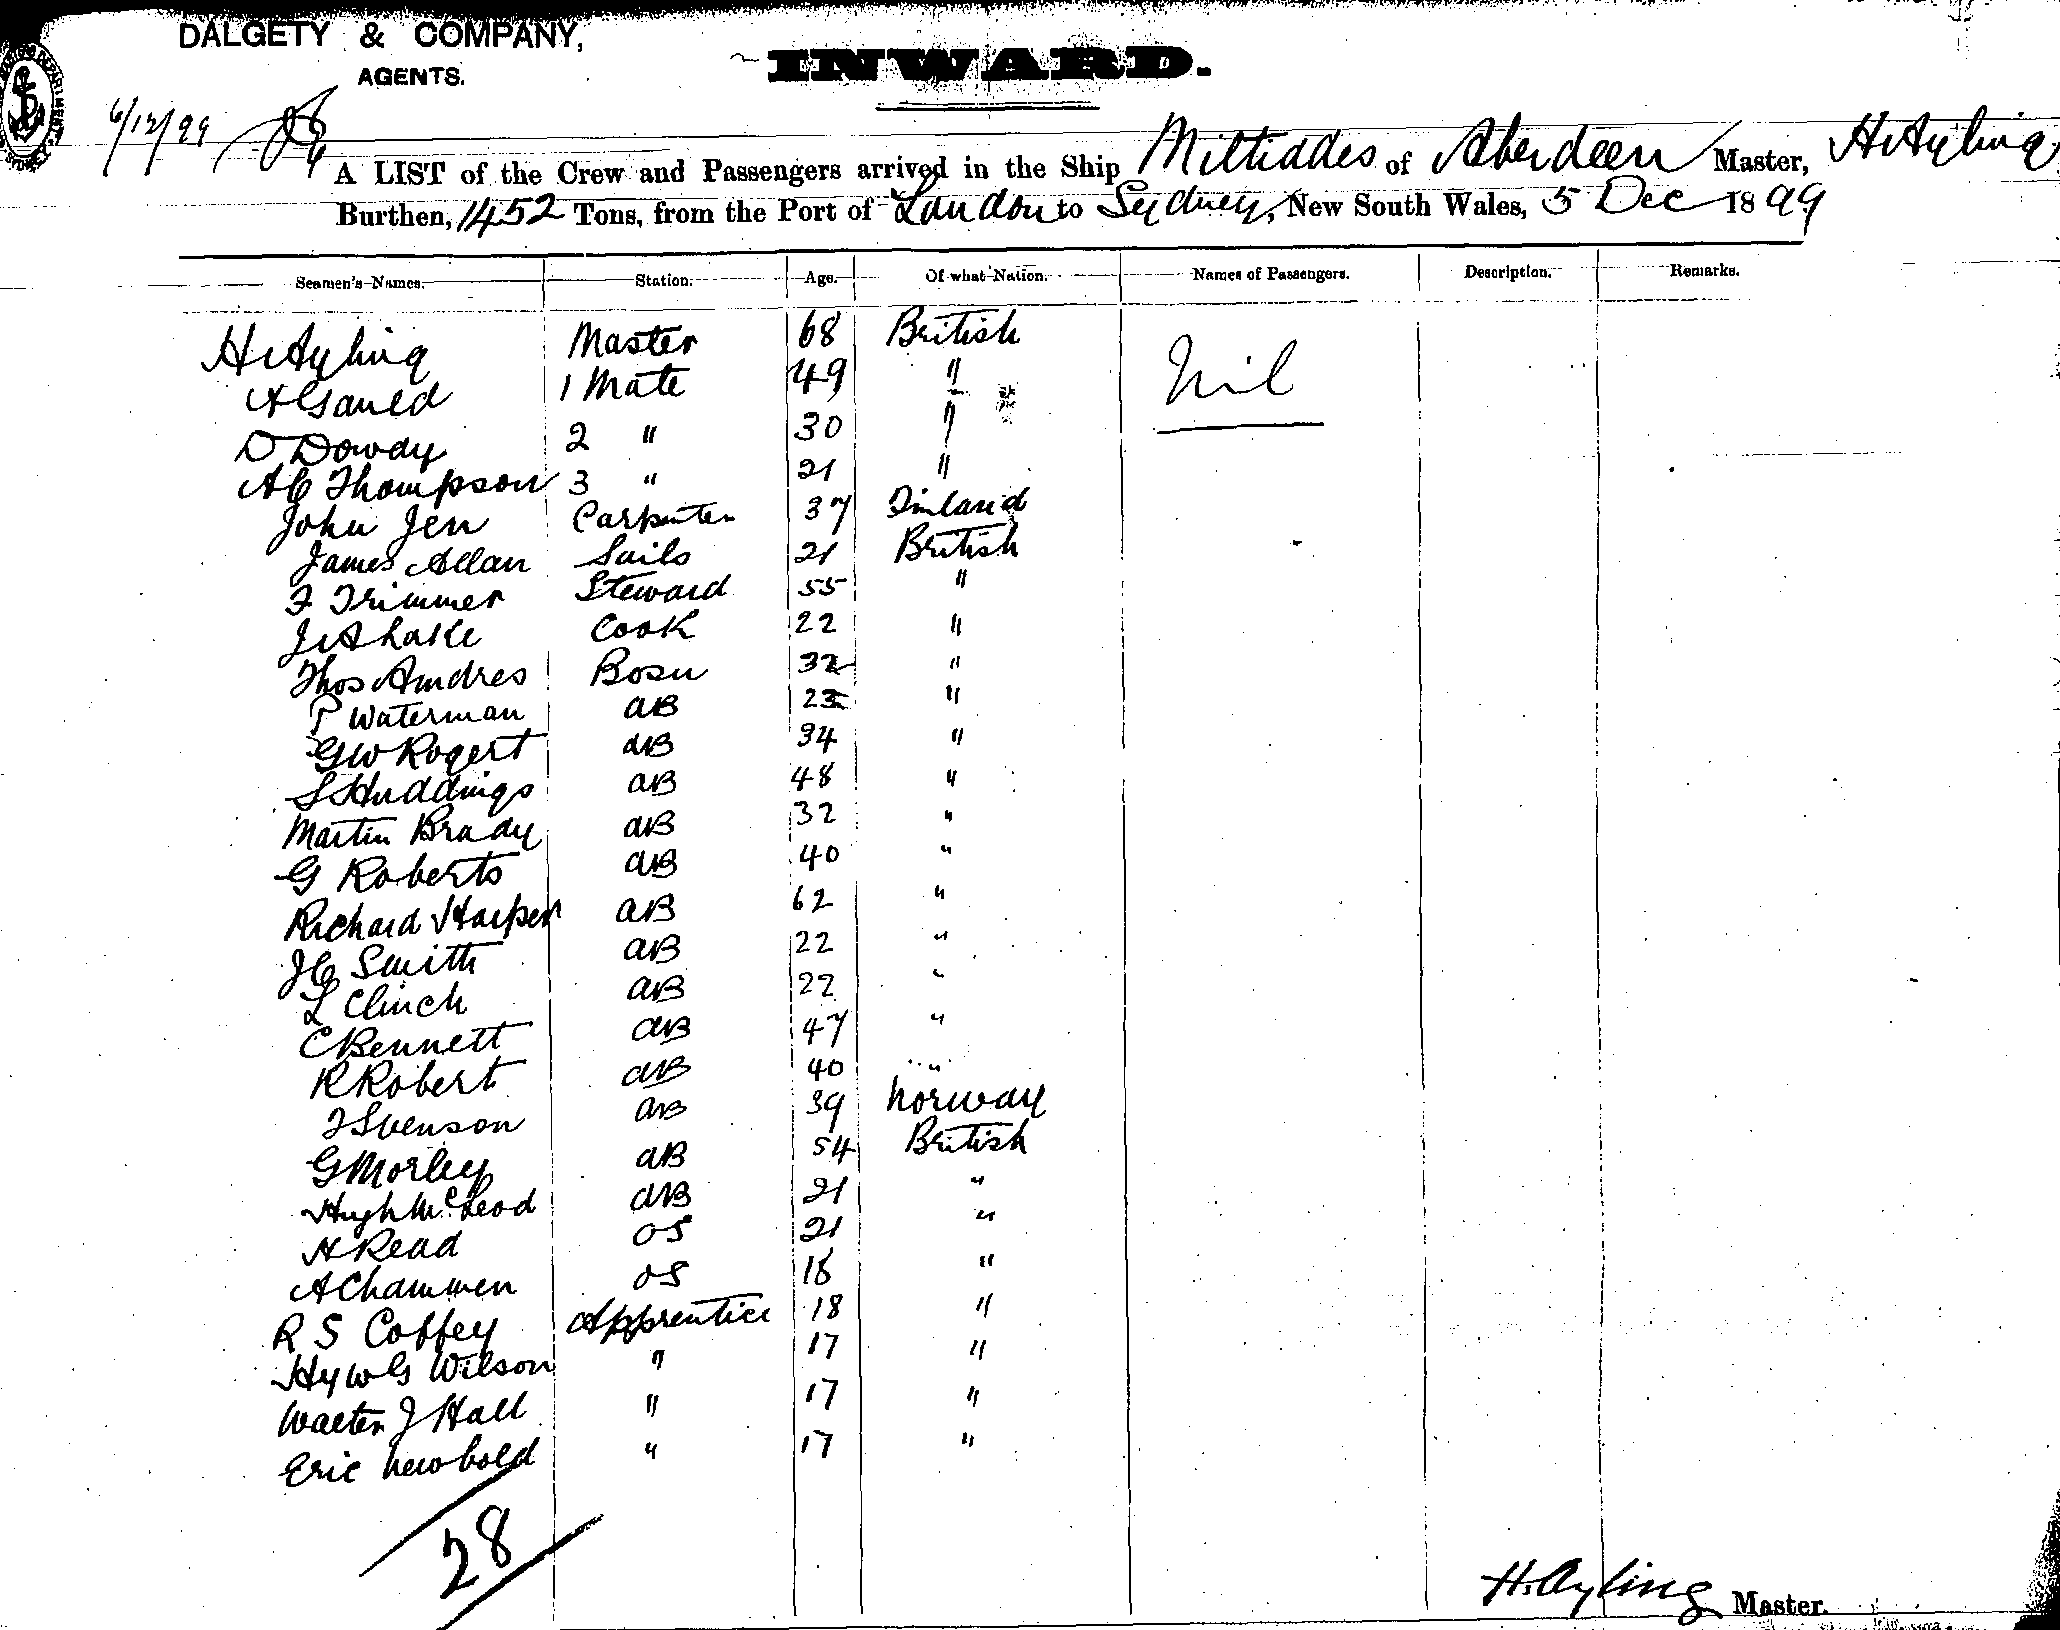 DALGETY & COMPANY,
AGENTS.
INWARD.
6/12/99
A LIST of the Crew and Passengers arrived in the Ship Miltiades of Aberdeen Master, H Ayling
Burthen, 1452 Tons, from the Port of London to Sydney, New South Wales, 5 Dec 1899
Seamen's Names. Station. Age. Of what Nation. Names of Passengers. Description. Remarks.
H Ayling Master 68 British Nil
A Gauld 1 Mate 49 "
D Dowdy 2 " 30 "
AC Thompson 3 " 21 "
John Jen Carpenter 37 Finland
James Allan Sails 21 British
F Trimmer Steward 55 "
J A Lake Cook 22 "
Thos Andres Bosn 32 "
P Waterman AB 23 "
GW Rogert AB 34 "
S Huddings AB 48 "
Martin Brady AB 32 "
G Roberts AB 40 "
Richard Harper AB 62 "
JC Smith AB 22 "
L Clinch AB 22 "
C Bennett AB 47 "
R Robert AB 40 "
J Svenson AB 39 Norway
G Morley AB 54 British
Hugh McLeod AB 21 "
H Read OS 21 "
A Chammen OS 18 "
R S Coffey Apprentice 18 "
Hy W G Wilson " 17 "
Walter J Hall " 17 "
Eric Newbold " 17 "
28
H. Ayling Master.